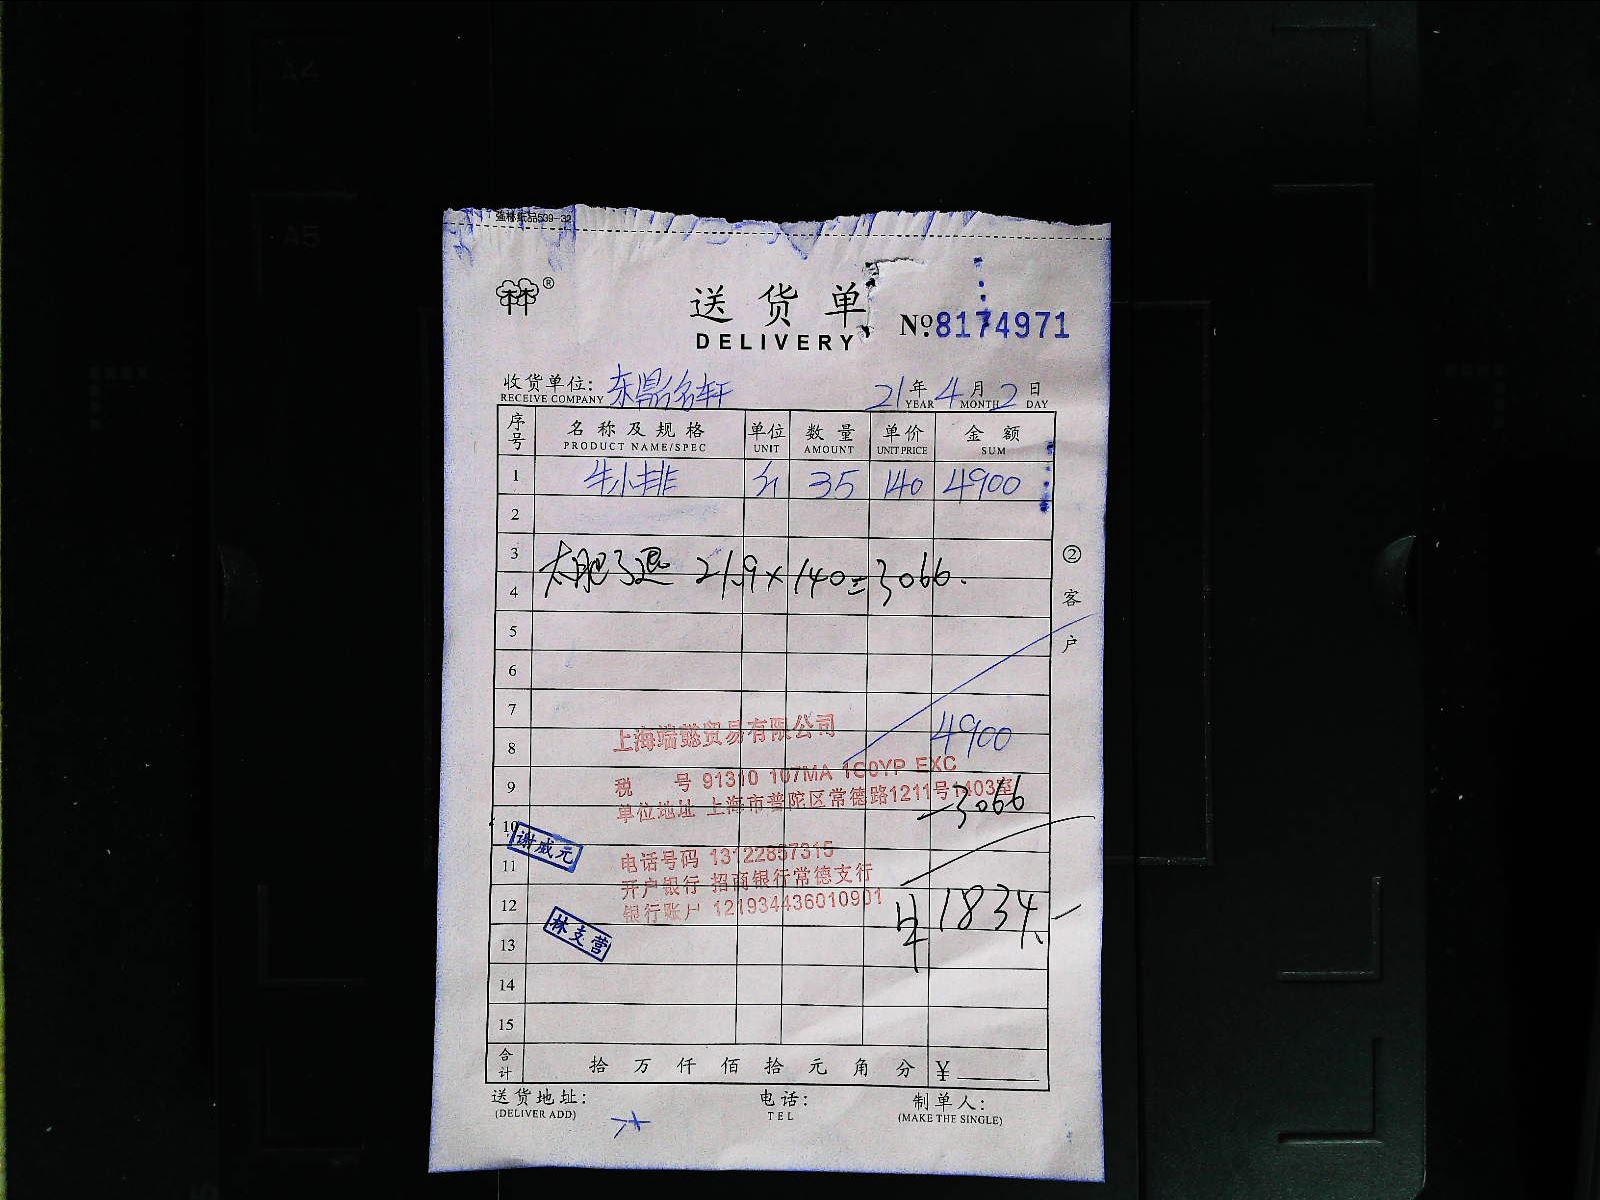 A4
A5
强林纸品509-32
林®
送货单
DELIVERY
No.8174971
收货单位: 东鼎名轩 21年4月2日
RECEIVE COMPANY YEAR MONTH DAY
序号 名称及规格 单位 数量 单价 金额
PRODUCT NAME/SPEC UNIT AMOUNT UNIT PRICE SUM
1 牛小排 斤 35 140 4900
2
3
太肥了退 21.9×140=3066.
4
5
6
7
4900
8
9
-3066
10
11
12
1834
13
14
15
上海端懿贸易有限公司
税 号 91310 107MA 1G0YP EXC
单位地址 上海市普陀区常德路1211号1403室
电话号码 13122857315
开户银行 招商银行常德支行
银行账户 121934436010901
谢咸元
林支营
②客户
合计 拾万仟佰拾元角分 ¥
送货地址: 电话: 制单人:
(DELIVER ADD) TEL (MAKE THE SINGLE)